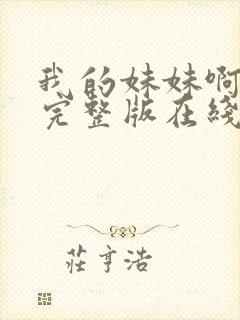 我的妹妹啊
完整版在线
莊亨浩